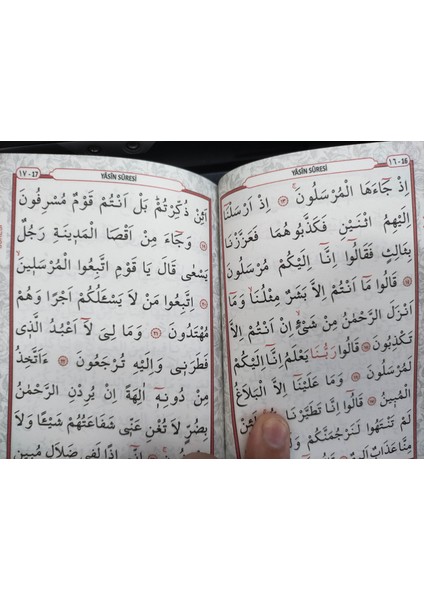 ١٦ - 16
YÂSÎN SÛRESİ
اِذْ جَٓاءَهَا الْمُرْسَلُونَۚ ﴿١٣﴾ اِذْ اَرْسَلْنَٓا
اِلَيْهِمُ اثْنَيْنِ فَكَذَّبُوهُمَا فَعَزَّزْنَا
بِثَالِثٍ فَقَالُٓوا اِنَّٓا اِلَيْكُمْ مُرْسَلُونَ
﴿١٤﴾ قَالُوا مَٓا اَنْتُمْ اِلَّا بَشَرٌ مِثْلُنَاۙ وَمَٓا
اَنْزَلَ الرَّحْمٰنُ مِنْ شَيْءٍۙ اِنْ اَنْتُمْ اِلَّا
تَكْذِبُونَ ﴿١٥﴾ قَالُوا رَبُّنَا يَعْلَمُ اِنَّٓا اِلَيْكُمْ
لَمُرْسَلُونَ ﴿١٦﴾ وَمَا عَلَيْنَٓا اِلَّا الْبَلَاغُ
الْمُبِينُ ﴿١٧﴾ قَالُٓوا اِنَّا تَطَيَّرْنَا
لَمْ تَنْتَهُوا لَنَرْجُمَنَّكُمْ
مِنَّا عَذَابٌ اَلِيمٌ
١٧ - 17
YÂSÎN SÛRESİ
اَئِنْ ذُكِّرْتُمْۜ بَلْ اَنْتُمْ قَوْمٌ مُسْرِفُونَ
﴿١٩﴾ وَجَٓاءَ مِنْ اَقْصَا الْمَدِينَةِ رَجُلٌ
يَسْعٰىۘ قَالَ يَا قَوْمِ اتَّبِعُوا الْمُرْسَلِينَۙ
﴿٢٠﴾ اِتَّبِعُوا مَنْ لَا يَسْـَٔلُكُمْ اَجْرًا وَهُمْ
مُهْتَدُونَ ﴿٢١﴾ وَمَا لِيَ لَٓا اَعْبُدُ الَّذِي
فَطَرَنِي وَاِلَيْهِ تُرْجَعُونَ ﴿٢٢﴾ ءَاَتَّخِذُ
مِنْ دُونِهٖٓ اٰلِهَةً اِنْ يُرِدْنِ الرَّحْمٰنُ
بِضُرٍّ لَا تُغْنِ عَنِّي شَفَاعَتُهُمْ شَيْـًٔا وَلَا
اِنِّٓي اِذًا لَفِي ضَلَالٍ مُبِينٍ